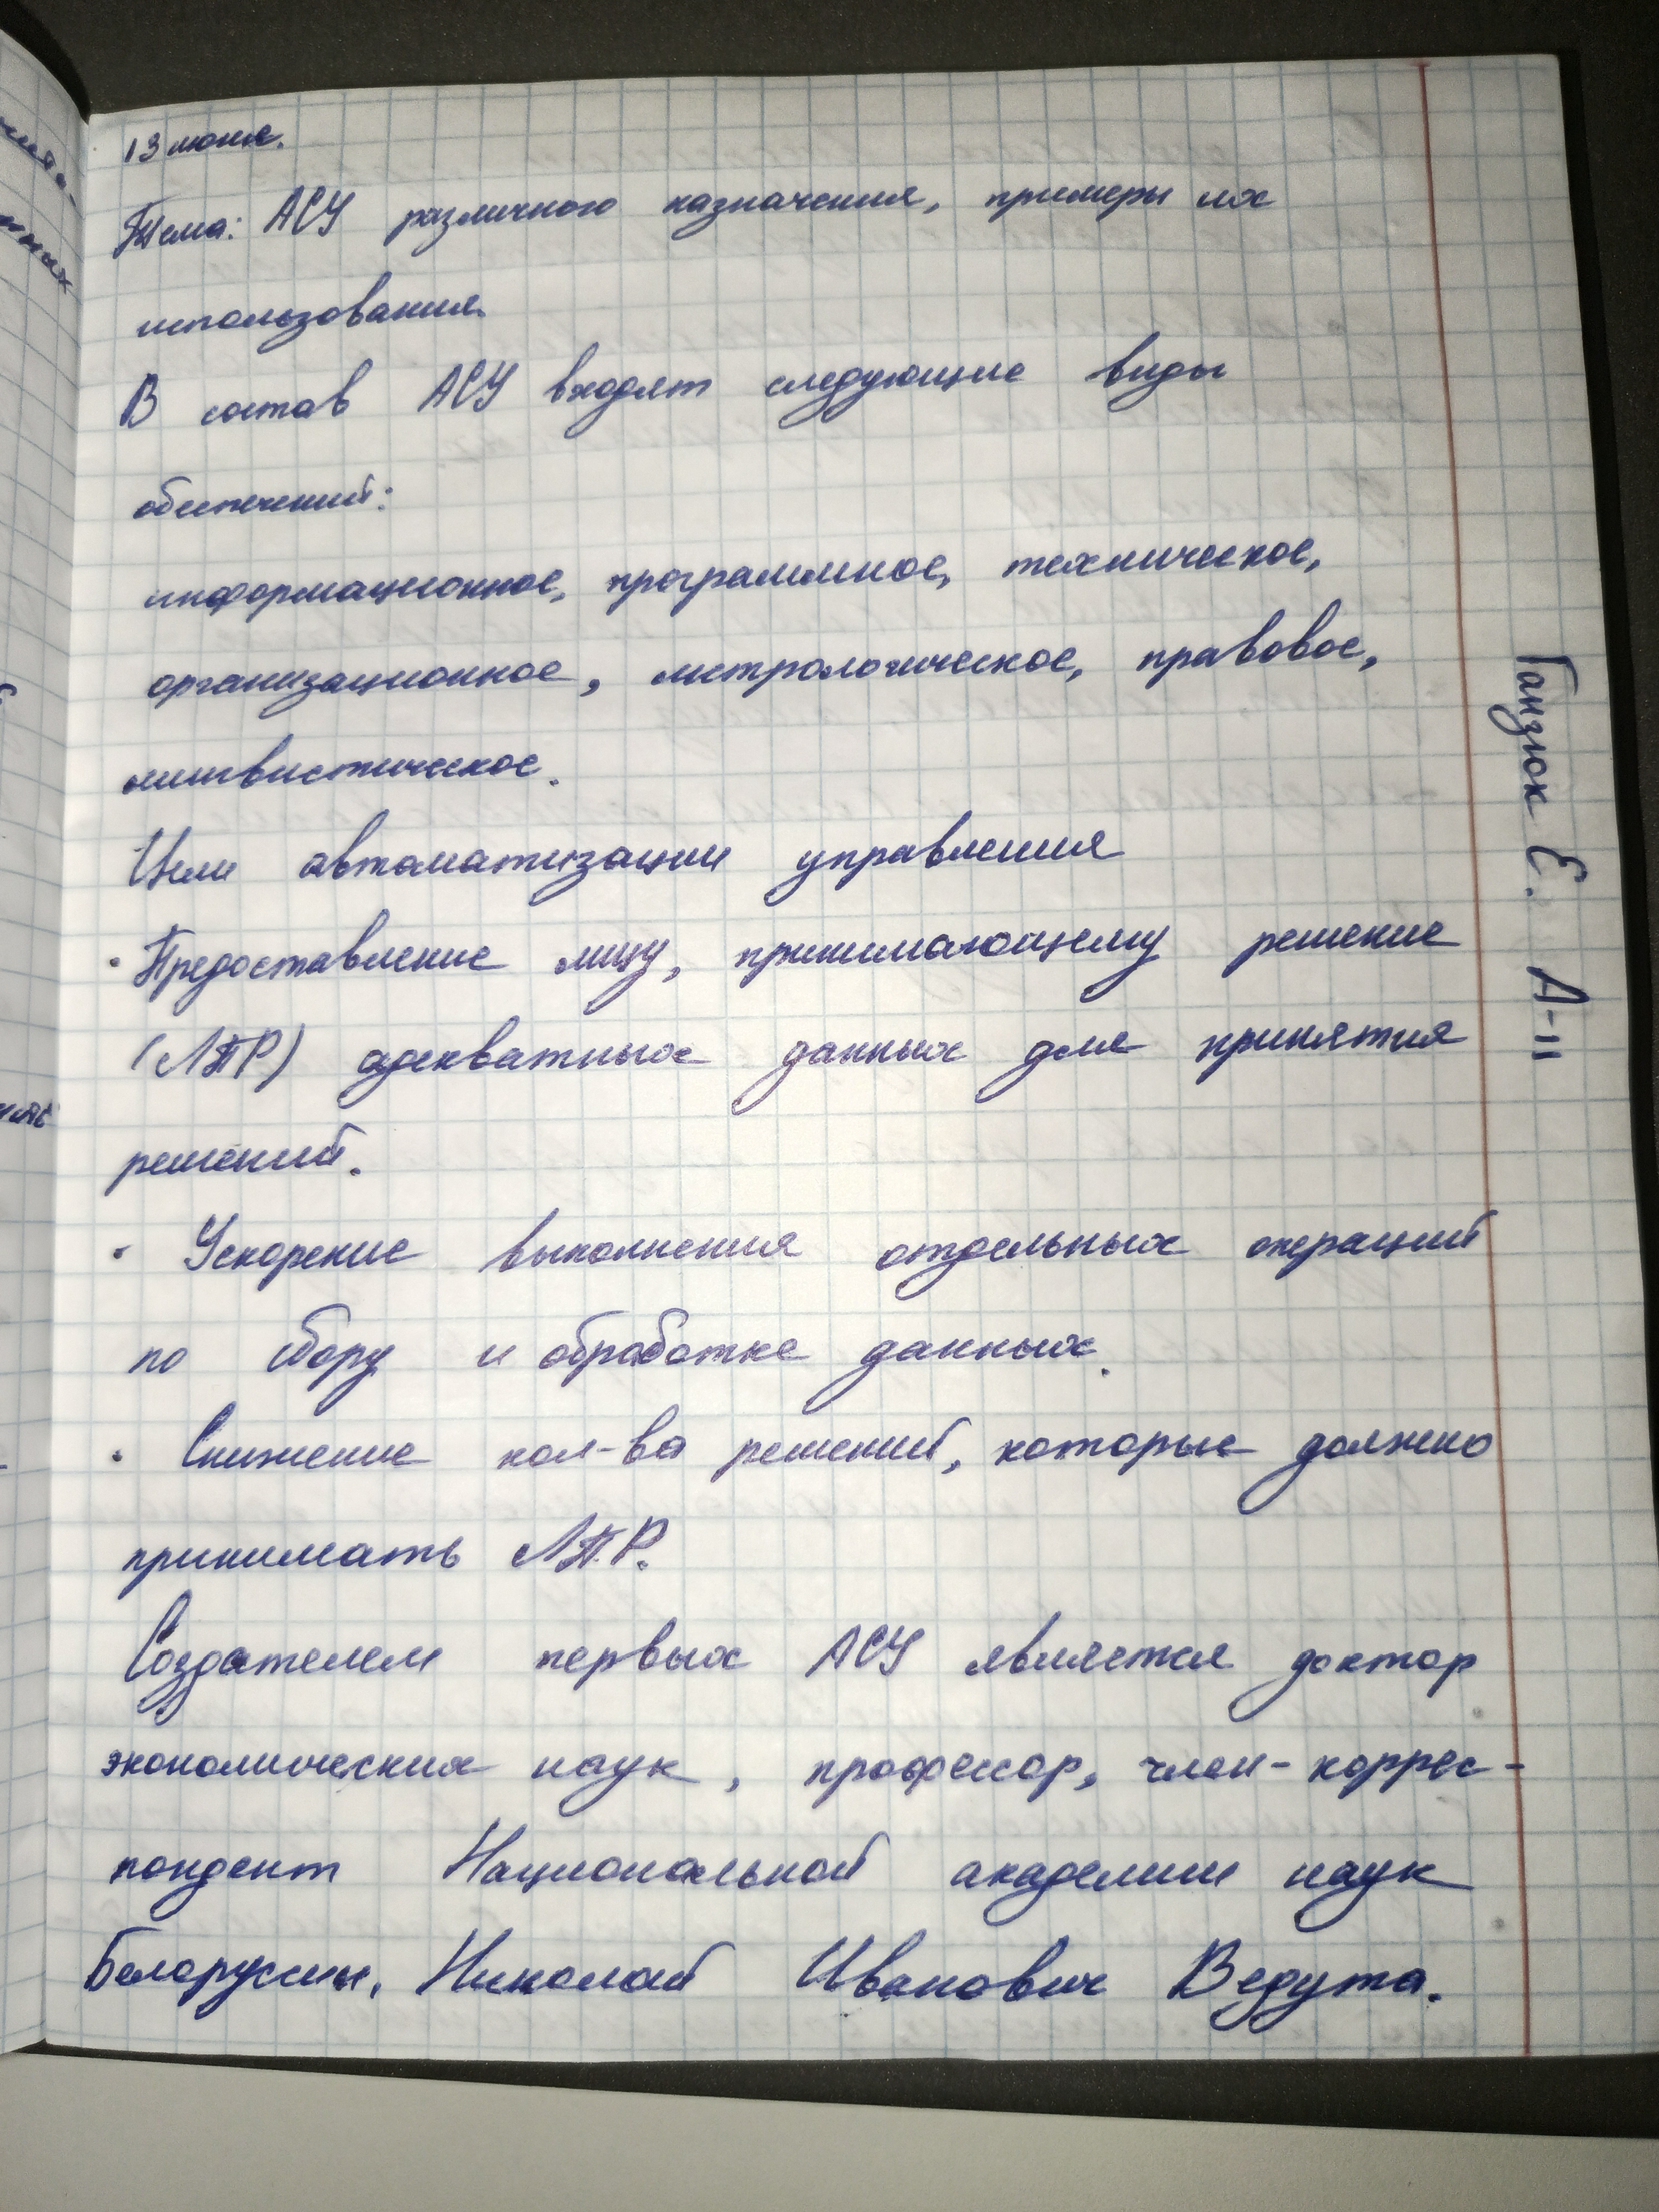 13 июня.
Тема: АСУ различного назначения, примеры их
использования.
В состав АСУ входят следующие виды
обеспечений:
информационное, программное, техническое,
организационное, метрологическое, правовое,
лингвистическое.
Цели автоматизации управления
· Предоставление лицу, принимающему решение
(ЛПР) адекватных данных для принятия
решений.
· Ускорение выполнения отдельных операций
по сбору и обработке данных.
· Снижение кол-ва решений, которые должно
принимать ЛПР.
Создателем первых АСУ является доктор
экономических наук, профессор, член-коррес-
пондент Национальной академии наук
Белоруссии, Николай Иванович Ведута.
Ганзюк Е. А-11